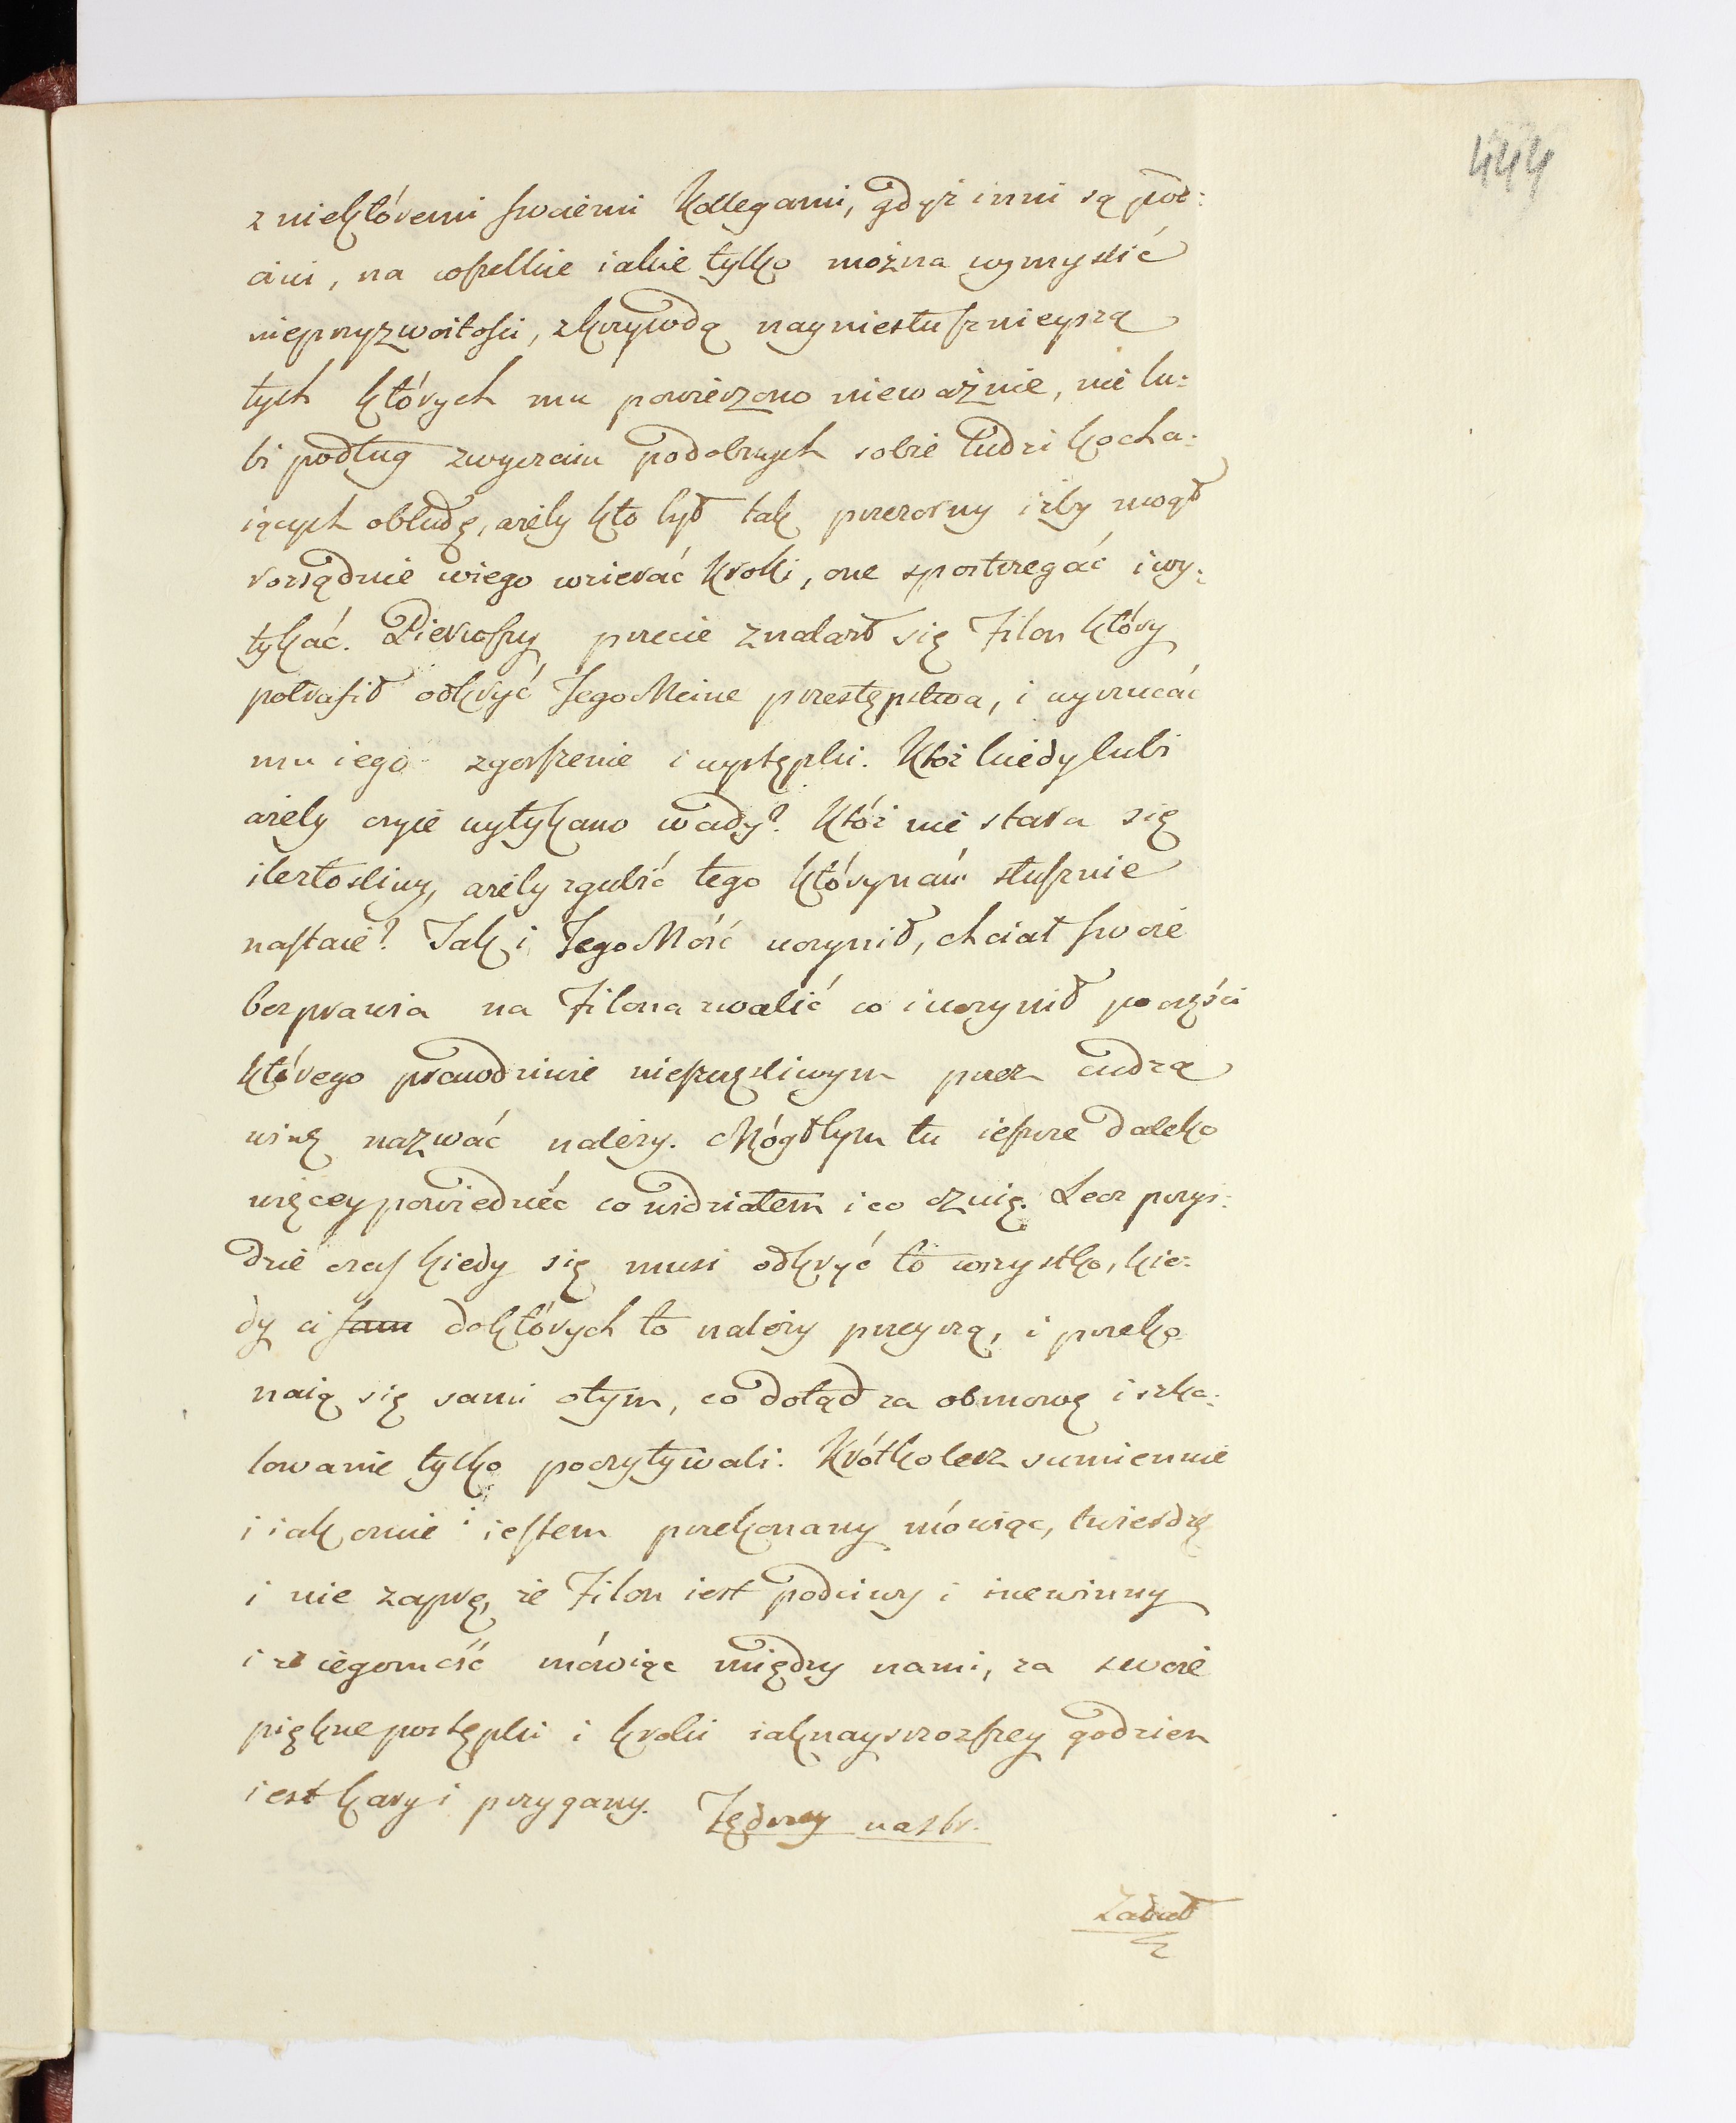 444
z niektóremi swoiemi Kollegami, gdyż inni są poć:
ciwi, na wszelkie iakie tylko można wymyslić
nieprzyzwoitości, zkrzywdą nayniesłusznieyszą
tych których mu powierzono nieważnie, nie lu:
bi podług zwyczaiu podobnych sobie ludzi kocha:
iących obłudę, ażeby kto był tak przezorny iżby mogł
rozsądnie wiego wzierać kroki, one spostrzegać i wy:
tykać. Pierwszy przecie znalazł się Filon który
potrafił odkryć JegoMcine przestępstwa, i wyrzucać
mu iego zgorszenie i występki. Któż kiedy lubi
ażeby czyie wytykano wady? Któż nie stara się
ilezłośliwy, ażeby zgubić tego którynań słusznie
nastaie? Tak i JegoMość uczynił, chciał swoie
bezprawia na Filona zwalić co i uczynił po części
którego prawdziwie nieszczęsliwym przez cudzą
winę nazwać należy. Mógłbym tu ieszcze daleko
więcey powiedzieć co widziałem i co czuię. Lecz przyi:
dzie czas kiedy się musi odkryć to wszystko, kie:
dy ci sam doktórych to należy przeyzrą, i przeko
naią się sami otym, co dotąd za obmowę i szka:
lowanie tylko poczytywali. Krótko lecz sumiennie
i iak o mnie i iestem przekonany mówiąc, twierdzę
i nie zaprę, że Filon iest podciwy i niewinny
i że iegomość mówiąc między nami, za swoie
piękne postępki i kroki iaknaysrozszey godzien
iest kary i przygany. Jędrzey nazbr.
Zadał